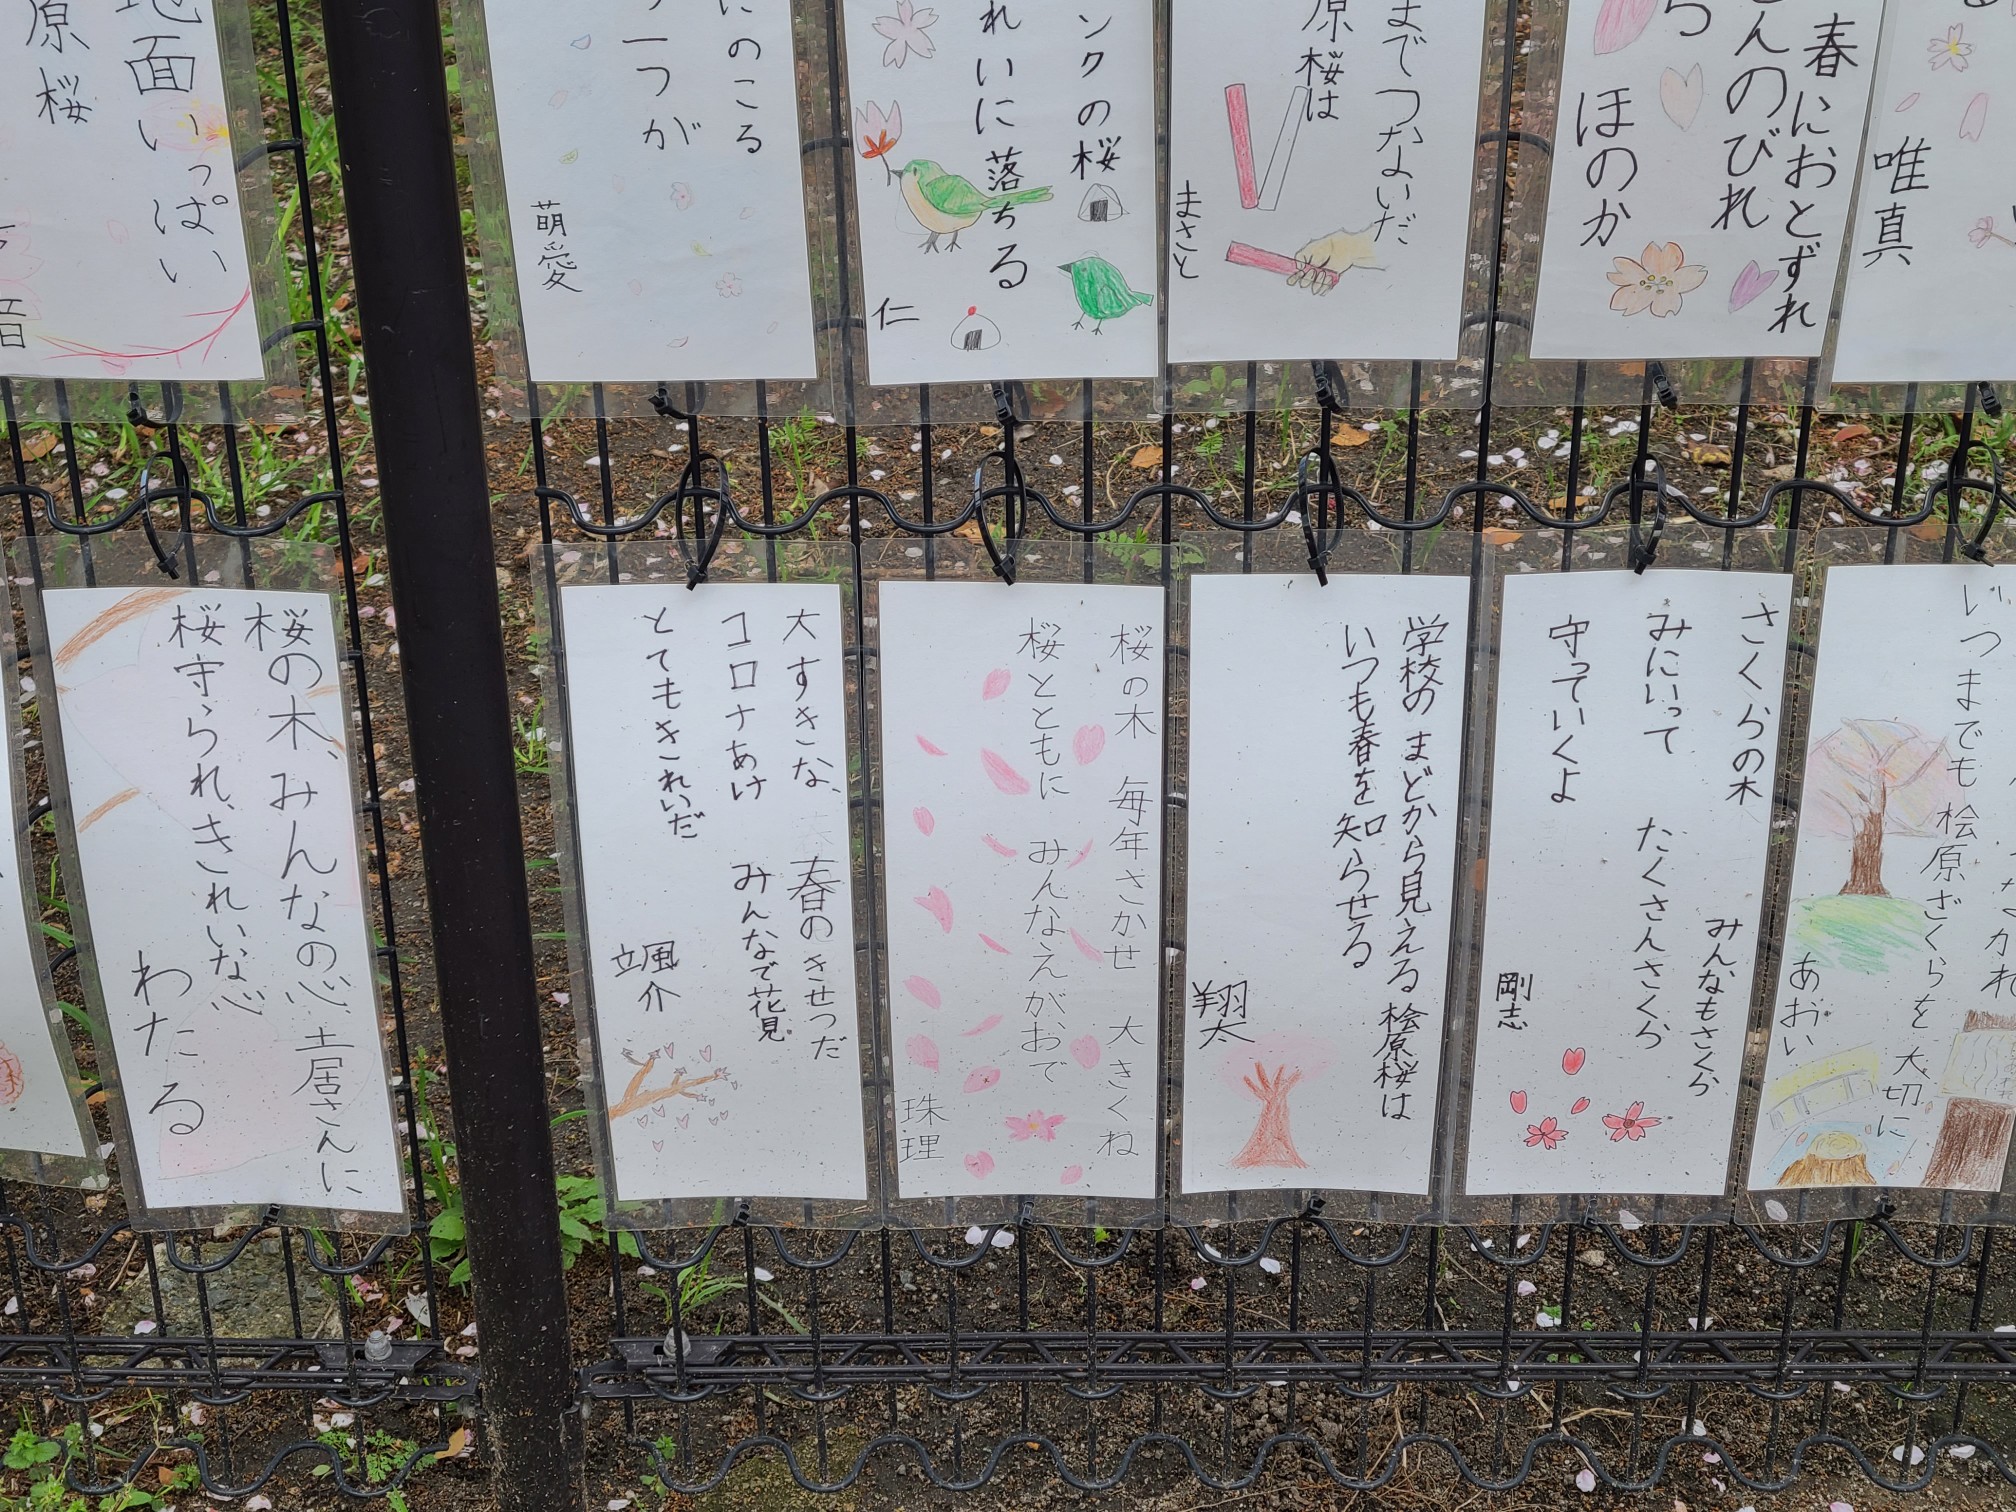 地面いっぱい
原桜
音
にのこる
一つが
萌愛
ンクの桜
れいに落ちる
仁
までつないだ
原桜は
まさと
春におとずれ
んのびれ
ら
ほのか
唯真
桜の木、みんなの心土居さんに
桜守られ、きれいな心
わたる
大すきな、春のきせつだ
コロナあけ みんなで花見
とてもきれいだ
颯介
桜の木 毎年さかせ 大きくね
桜とともに みんなえがおで
珠理
学校の まどから見える 桧原桜は
いつも春を 知らせる
翔太
さくらの木 みんなもさくら
みにいって たくさんさくら
守っていくよ
剛志
いつまでも桧原ざくらを大切に
あおい